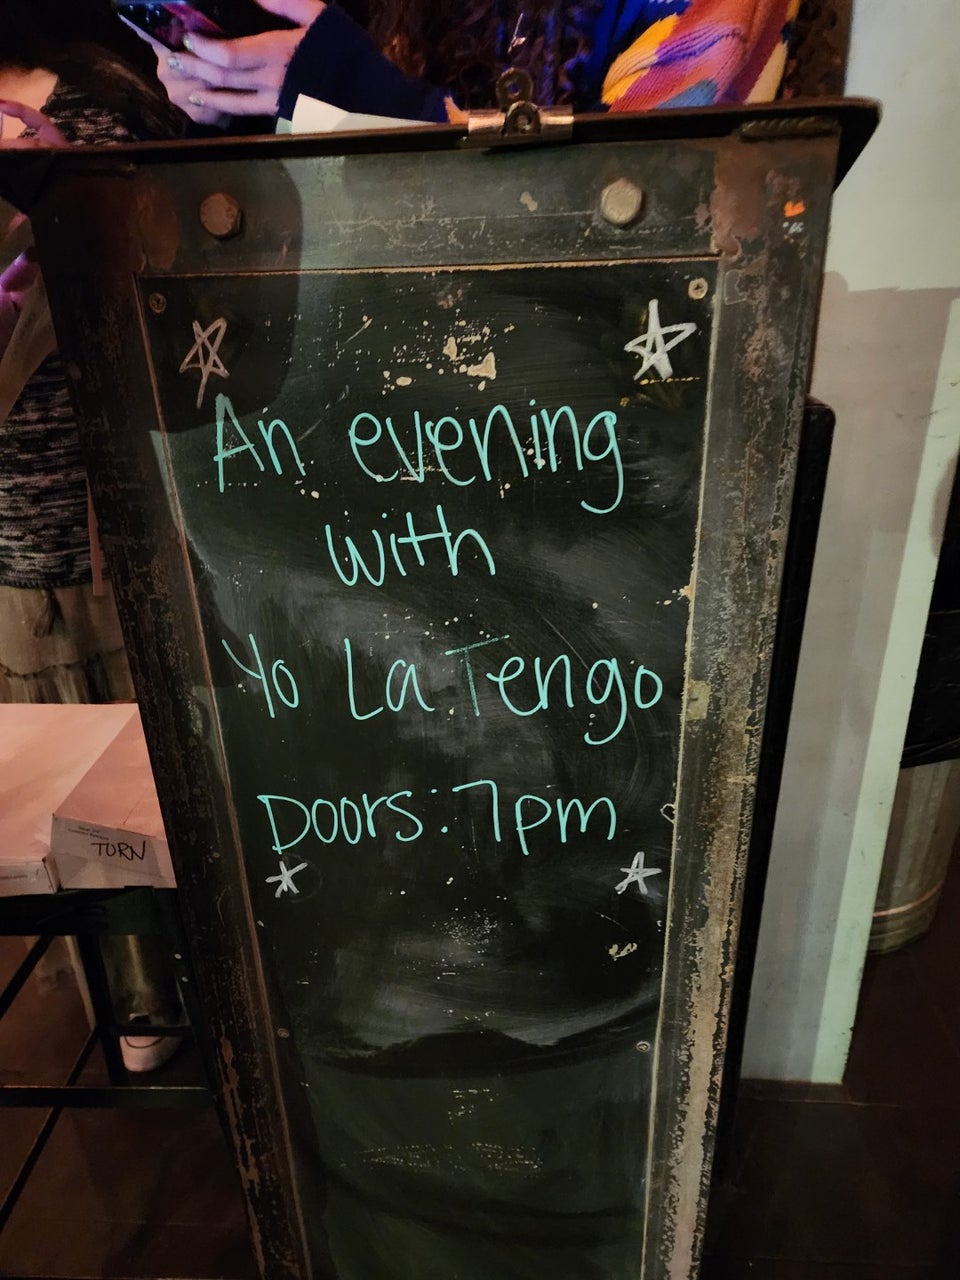 An evening
with
Yo La Tengo
Doors: 7pm
TURN